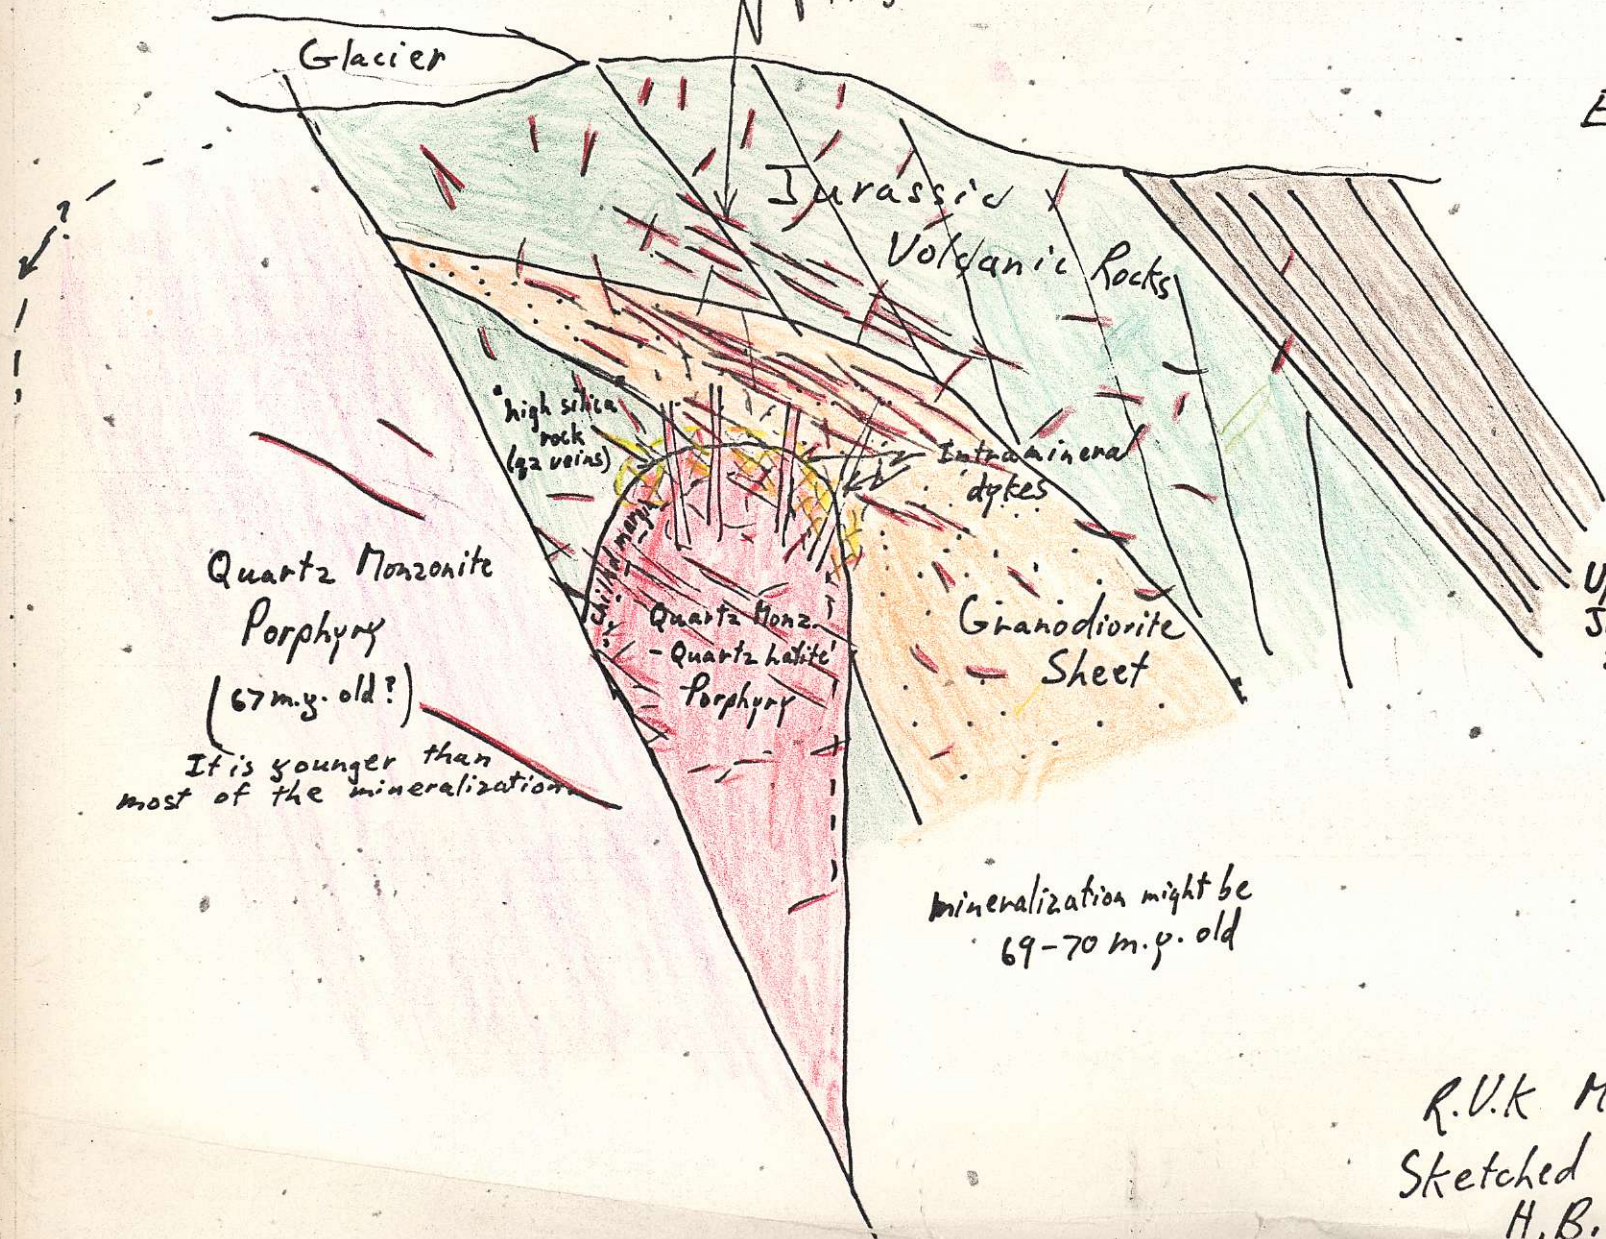 Glacier
E
?
Jurassic
Volcanic Rocks
"high silica
rock
(qz veins)
Intramineral
dykes
chilled margin
Quartz Monzonite
Porphyry
(67 m.y. old?)
It is younger than
most of the mineralization
Quartz Monz.
- Quartz Latite
Porphyry
Granodiorite
Sheet
mineralization might be
69-70 m.y. old
R.V.K M
Sketched
H.B.